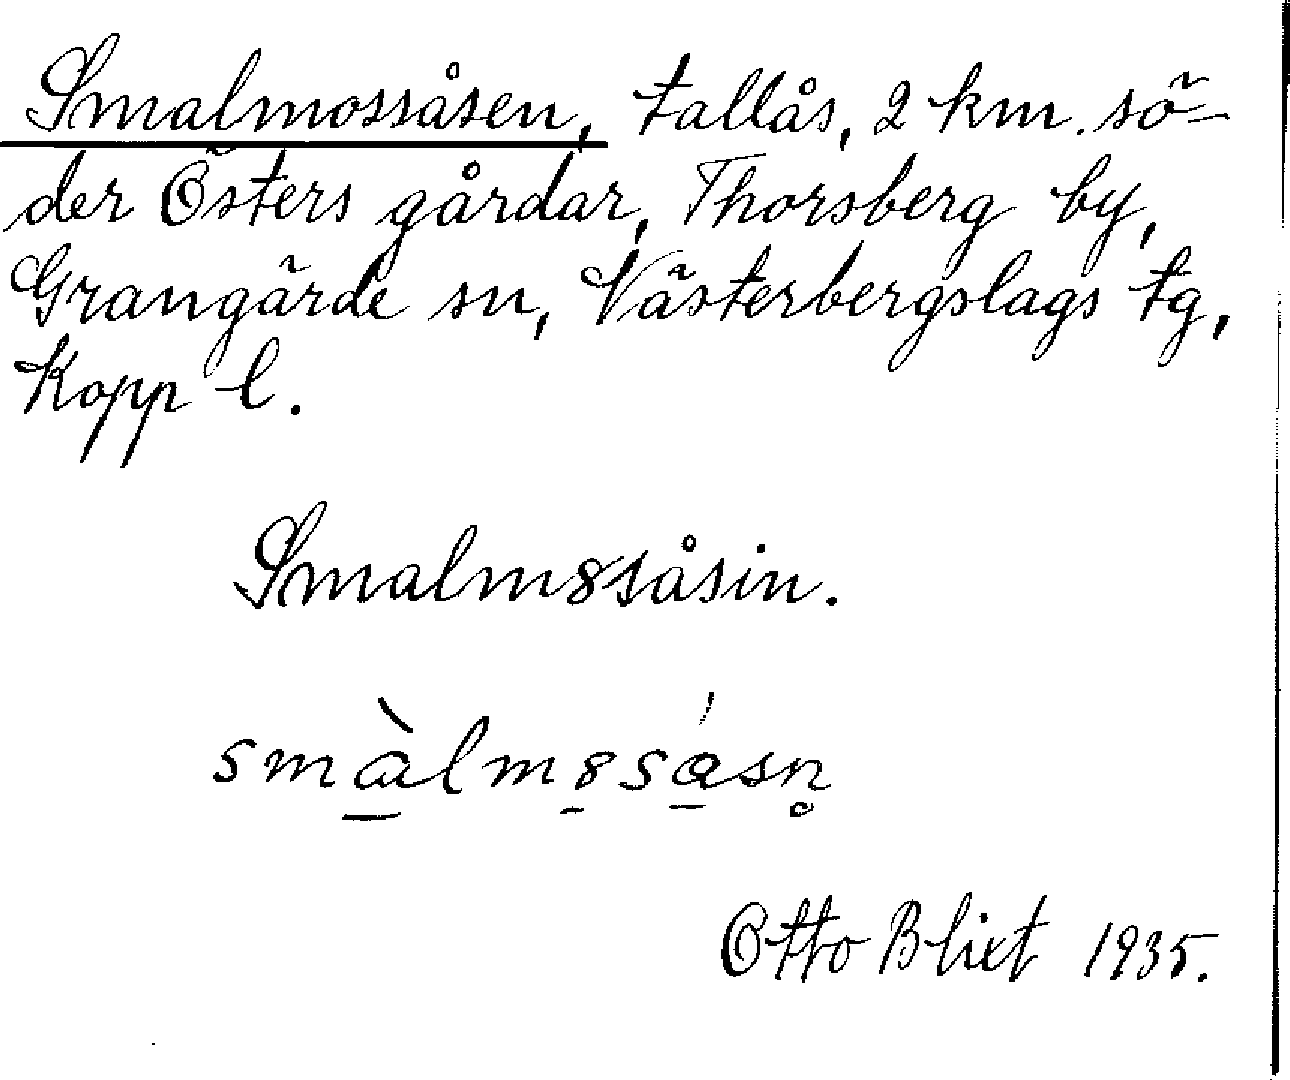 Smalmossåsen, tallås, 2 km. sö-
der Östers gårdar, Thorsberg by,
Grangärde sn, Västerbergslags tg,
Kopp l.
Smalm8såsin.
smàlm8sásn̥
Otto Blixt 1935.